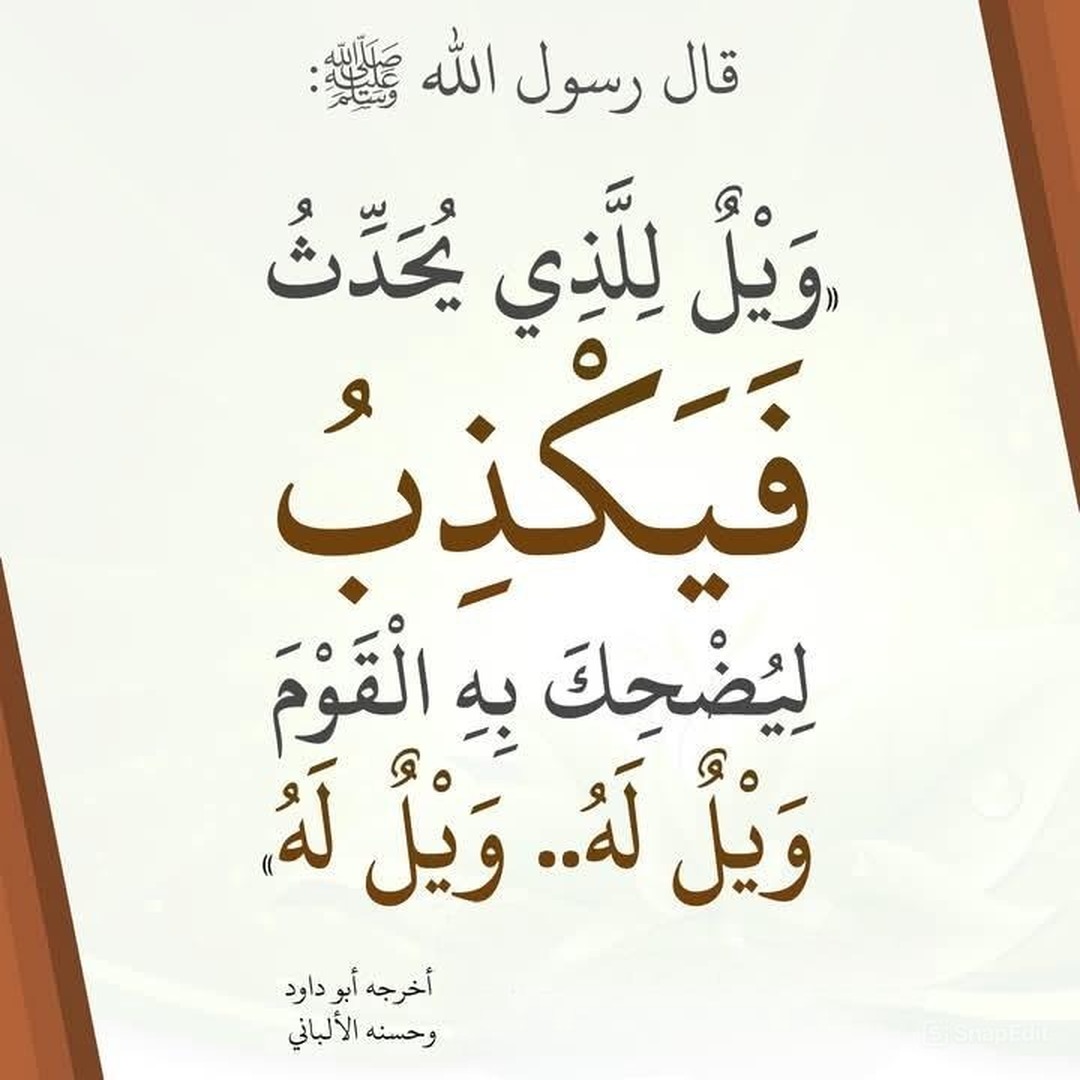 قال رسول الله ﷺ:
«وَيْلٌ لِلَّذِي يُحَدِّثُ
فَيَكْذِبُ
لِيُضْحِكَ بِهِ الْقَوْمَ
وَيْلٌ لَهُ.. وَيْلٌ لَهُ»
أخرجه أبو داود
وحسنه الألباني
SnapEdit